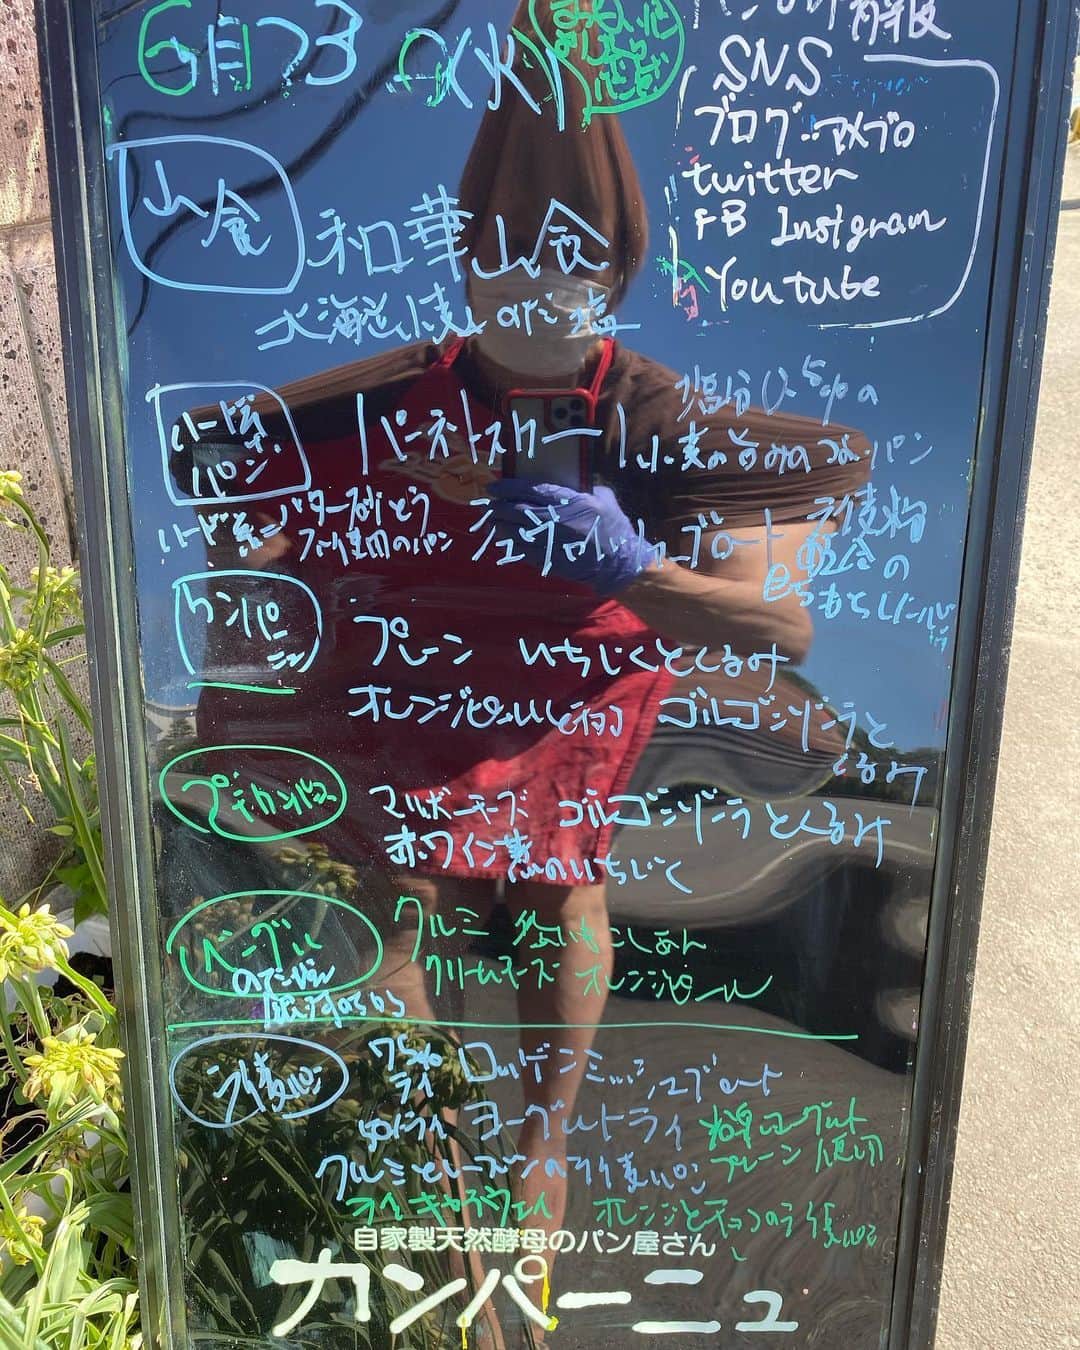 6月23日(火)
情報
SNS
ブログ:アメブロ
twitter
FB Instgram
Youtube
山食
和華山食
北海道小麦 塩
ハード系
パン
パーネトスカーノ
塩分ひかえめの
小麦の旨みのつよいパン
ハード系 バター 砂とう
不使用のパン
シュヴァイツァーブロート
ライ麦粉
配合の
カンパーニュ
プレーン いちじくとくるみ
オレンジピールとチョコ ゴルゴンゾーラと
くるみ
プチカンパーニュ
マルボーチーズ ゴルゴンゾーラとくるみ
赤ワイン煮のいちじく
ベーグル
クルミ こしあん
クリームチーズ オレンジピール
ライ麦パン
75%
ライ
ロッゲンミッシュブロート
ヨーグルトライ
ヨーグルト
プレーン 使用
クルミとレーズンのライ麦パン
キャラウェイ オレンジとチョコのライ麦パン
自家製天然酵母のパン屋さん
カンパーニュ